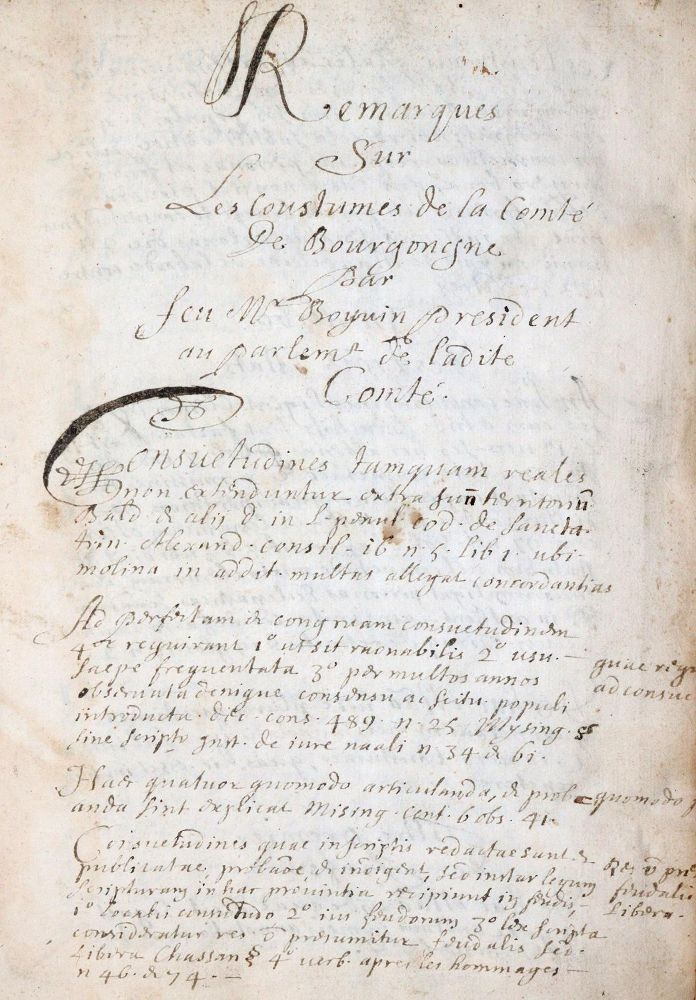 Remarques
Sur
Les Coustumes de la Comté
De Bourgongne
Par
feu Mr Boyuin President
au Parlemt de ladite
Comté.
Consuetudines tamquam reales
non extenduntur extra suũ territoriũ
Bald & alij d. in L. penut cod. de sancta
trin. Alexand. consil. 16 n. 5. lib 1 ubi
molina in addit. multas allegat concordantias
Ad perfectam & congruam consuetudinem
4or requirunt 1o ut sit raonabilis 2o usu
saepe frequentata 3o per multos annos
observata denique consensu ac scitu populi
introducta dec. cons. 489. n. 25 Mysing. §
sine scripto inst. de iure naali n 34 & 61.
Haec quatuor quomodo articulanda, & prob
anda sint explicat Mising. Cent. 6 obs. 41.
Coisuetudines quae in scriptis redactae sunt &
publicatae, probaõe indigent, sed instar legum
scripturam in hac provintia recipiunt in feudis,
1o localis consuetudo 2o ius feudorum 3o lex scripta
consideratur res õ praesumitur feudalis sed
libera Chassan § 4o verb. apres les hommages
n 46. & 74.
quae requ
ad consue
quomodo p
Res õ pres
feudalis
Libera.